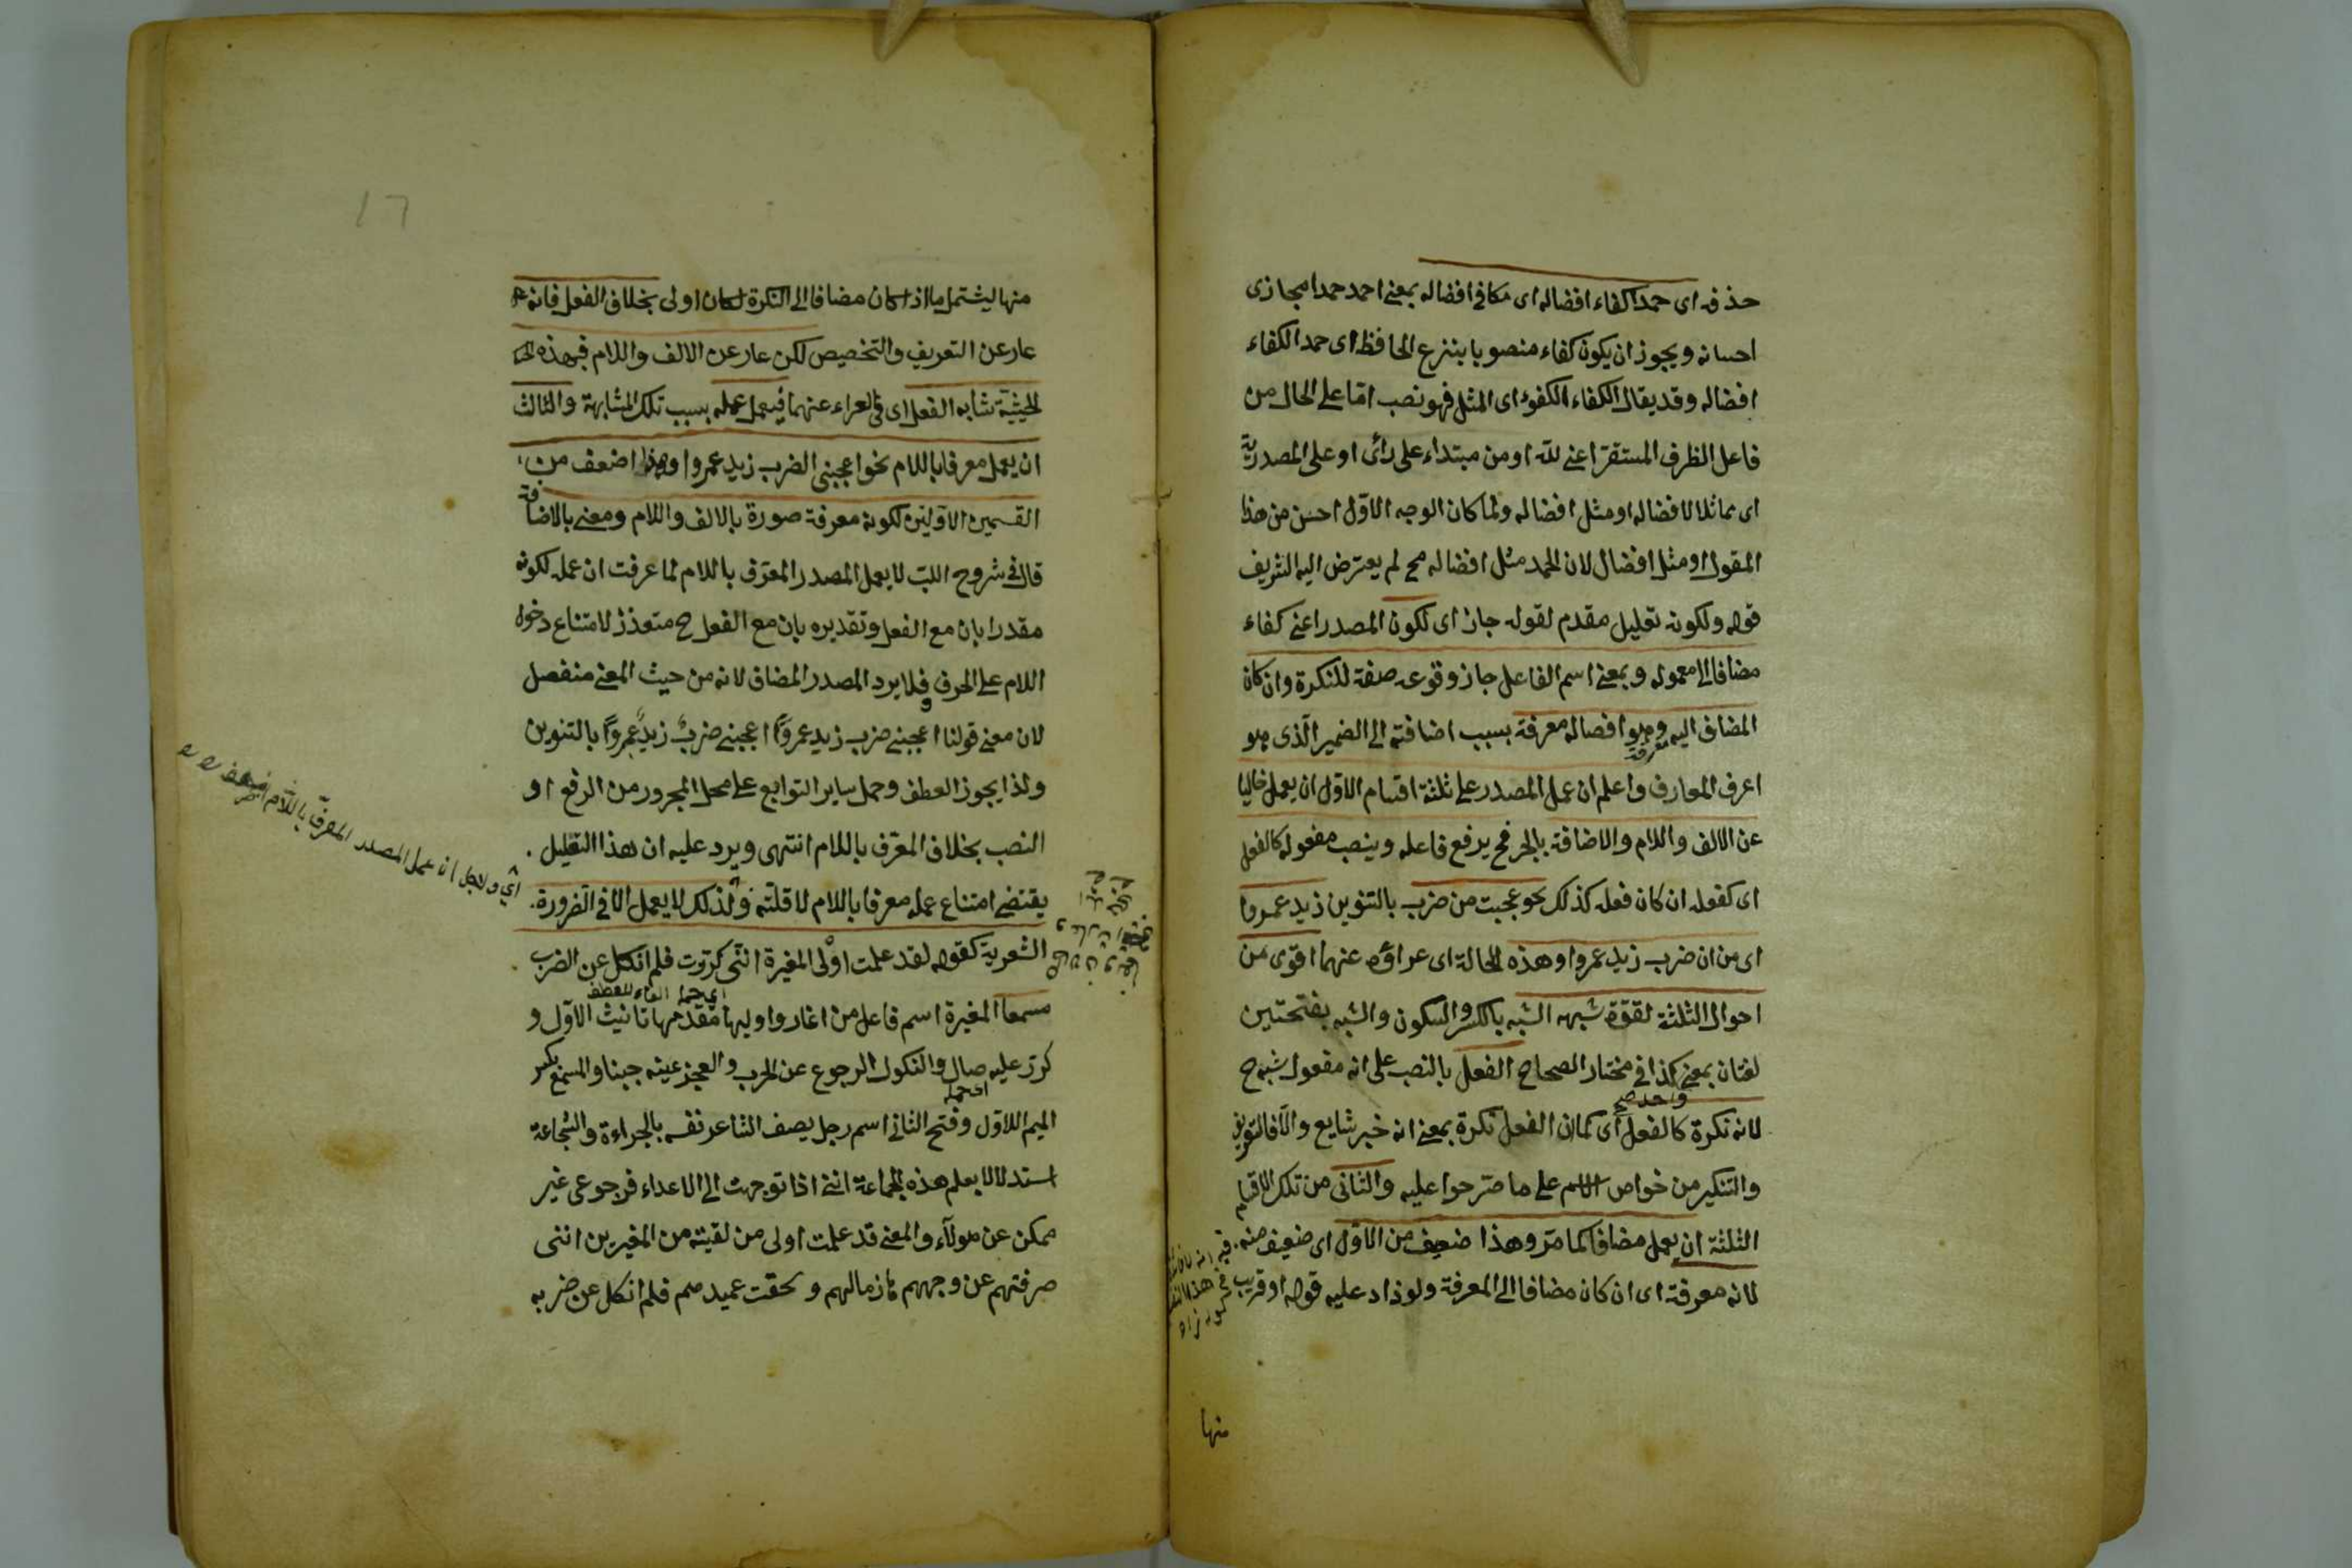 حذفه اى حمدا كفاء افضاله اى مكافى افضاله بمعنى احمد حمدا مجازى
احسانه ويجوز ان يكون كفاء منصوبا بنزع الخافظ اى حمد الكفاء
افضاله وقد يقال الكفاء الكفوء اى المثل فهو نصب امّا على الحال من
فاعل الظرف المستقر اعنى لله او من مبتداء على رأى او على المصدرية
اى مماثلا لافضاله او مثل افضاله ولما كان الوجه الاوّل احسن من هذا
المقول او مثل افضال لان الحمد مثل افضاله مح لم يعترض اليه الشريف
قوله ولكونه تعليل مقدم لقوله جاز اى لكون المصدر اعنى كفاء
مضافا الى معموله وبمعنى اسم الفاعل جاز وقوعه صفة للنكرة وان كان
المضاف اليه وهو افضاله معرفة بسبب اضافته الى الضمير الّذى هو
اعرف المعارف واعلم ان عمل المصدر على ثلثة اقسام الاوّل ان يعمل خاليا
عن الالف واللام والاضافة بالجر فح يرفع فاعله وينصب مفعوله كالفعل
اى كفعله ان كان فعله كذلك نحو عجبت من ضرب بالتنوين زيد عمروا
اى من ان ضرب زيد عمروا وهذه الحالة اى عراؤه عنهما اقوى من
احوال الثلثة لقوة شبهه الشبه بالكسر والسكون والشبه بفتحتين
لغتان بمعنى واحد صح كذا فى مختار الصحاح الفعل بالنصب على انه مفعول شبه ح
لانه نكرة كالفعل اى كما ان الفعل نكرة بمعنى انه خبر شايع والّا فالتعريف
والتنكير من خواص الاسم على ما صّرحوا عليه والثانى من تلك الاقسام
الثلثة ان يعمل مضافا كما مرّ وهذا ضعيف من الاوّل اى ضعيف منه
لانه معرفة اى ان كان مضافا الى المعرفة ولو زاد عليه قوله او قريب
منها
١٦
منها ليشتمل ما اذا كان مضافا الى النكرة لكان اولى بخلاف الفعل فانه
عار عن التعريف والتخصيص لكن عار عن الالف واللام فبهذه
الحيثية تشابه الفعل اى فى العراء عنهما فيعمل عمله بسبب تلك المشابهة والثالث
ان يعمل معرفا باللام نحو اعجبنى الضرب زيد عمروا وهذا اضعف من
القسمين الاوّلين لكونه معرفة صورة بالالف واللام ومعنى بالاضافة
قال فى شروح اللبّ لا يعمل المصدر المعرّف باللام لما عرفت ان عمله لكونه
مقدرا بان مع الفعل وتقديره بان مع الفعل ح متعذر لامتناع دخول
اللام على الحرف فلا يرد المصدر المضاف لانه من حيث المعنى منفصل
لان معنى قولنا اعجبنى ضرب زيد عمروًا اعجبنى ضربٌ زيدٌ عمروًا بالتنوين
ولذا يجوز العطف وحمل ساير التوابع على محل المجرور من الرفع او
النصب بخلاف المعرّف باللام انتهى ويرد عليه ان هذا التعليل
يقتضى امتناع عمله معرفا باللام لا قلّته ولذلك لا يعمل الا فى الضرورة
اى ولاجل ان عمل المصدر المعرّف باللّام
الشعرية كقوله لقد علمت اولى المغيرة انّنى كررت فلم انكل عن الضرب
مسمعا المغيرة اسم فاعل من اغار واوليها مقدمها تانيث الاوّل و
كرّ عليه صال والنكول الرجوع عن الحرب والعجز عينه جبنا والمسمع بكسر
الميم الاوّل وفتح الثانى اسم رجل يصف الشاعر نفسه بالجراءة والشجاعة
استدلالا بعلم هذه الجماعة اننى اذا توجهت الى الاعداء فرجوعى غير
ممكن عن هولآء والمعنى قد علمت اولى من لقيته من المغيرين اننى
صرفتهم عن وجههم هازما لهم ولحقت عميدهم فلم انكل عن ضربه